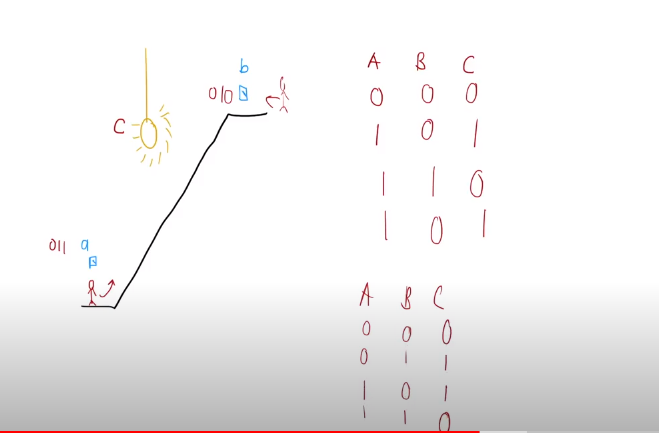 b
010
C
011 a
A B C
0 0 0
1 0 1
1 1 0
1 0 1
A B C
0 0 0
0 1 1
1 0 1
1 1 0